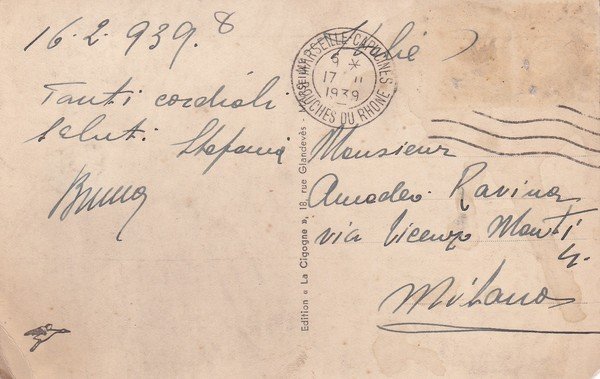 16.2.939.8
Tanti cordiali
saluti Stefania
Bruno
Edition « La Cigogne », 18, rue Glandevès - MARSEILLE
MARSEILLE-CAPUCINES
9 *
17 II
1939
BOUCHES DU RHONE
Italie
Monsieur
Amadeo Ravina
via Vicenzo Monti
Milano